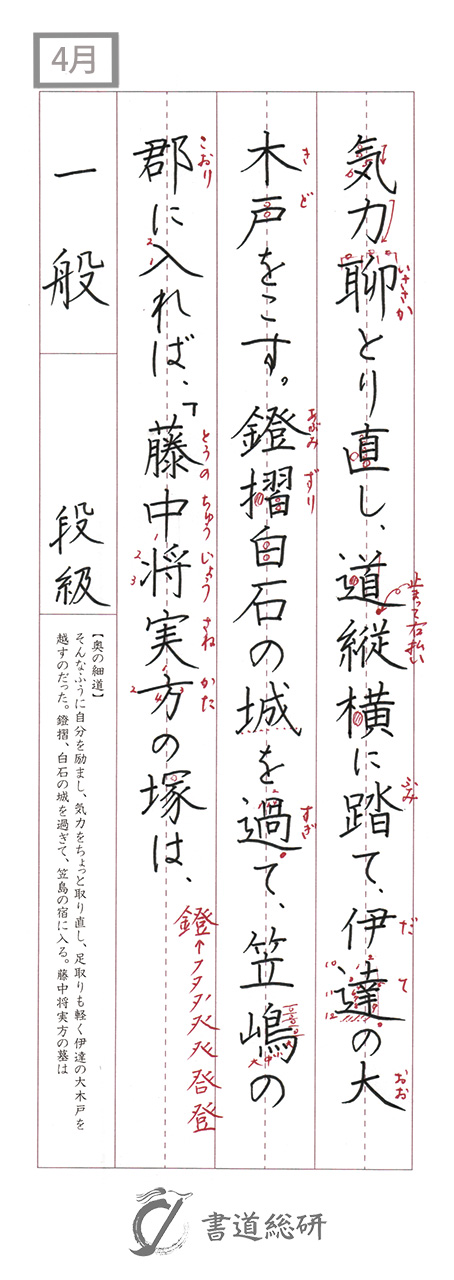 4月
気力聊とり直し、道縦横に踏て、伊達の大
いささか
止まって右払い
ふみ
だて
おお
木戸をこす。鐙摺白石の城を過て、笠嶋の
きど
あぶみ
ずり
すぎ
大中小
郡に入れば、「藤中将実方の塚は、
こおり
とうの
ちゅう
じょう
さね
かた
鐙
登
一般
段級
【奥の細道】
そんなふうに自分を励まし、気力をちょっと取り直し、足取りも軽く伊達の大木戸を
越すのだった。鐙摺、白石の城を過ぎて、笠島の宿に入る。藤中将実方の墓は
書道総研